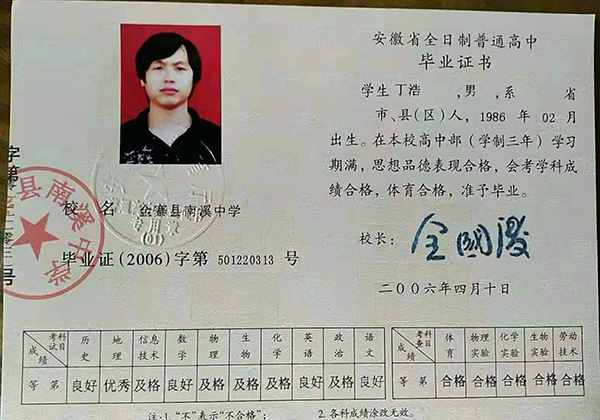 安徽省全日制普通高中
毕业证书
学生丁浩 ,男,系 省
市、县(区)人,1986 年 02 月
出生。在本校高中部(学制三年)学习
期满,思想品德表现合格,会考学科成
绩合格,体育合格,准予毕业。
校长:
二〇〇六年四月十日
校 名 金寨县南溪中学
毕业证(2006)字第 501220313 号
县南溪中学
考试科目 成绩 历史 地理 信息技术 数学 物理 生物 化学 英语 政治 语文
等第 良好 优秀 及格 良好 及格 及格 及格 良好 良好 良好
考查科目 成绩 体育 物理实验 化学实验 生物实验 劳动技术
等第 合格 合格 合格 合格 合格
注:1.“不”表示“不合格”; 2.各科成绩涂改无效。